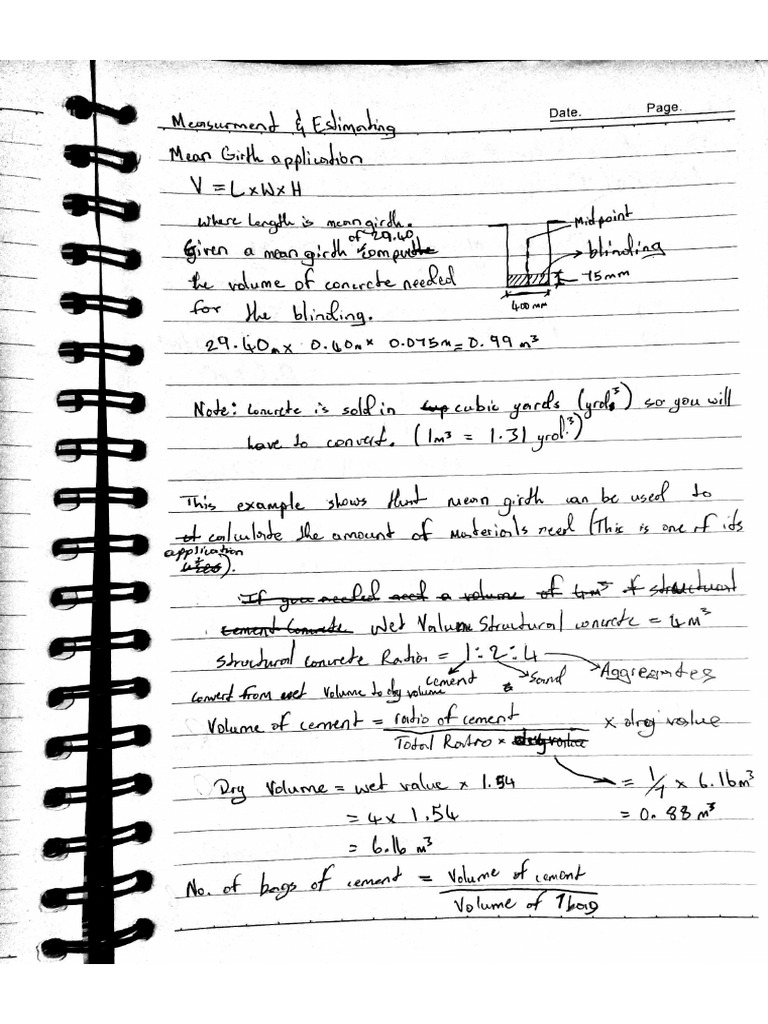 Date. Page.
Measurment & Estimating
Mean Girth application
V = L×W×H
where length is mean girth.
Given a mean girth of 29.40 compute
the volume of concrete needed
for the blinding.
Midpoint
blinding
75mm
400mm
29.40m × 0.40m × 0.075m = 0.99 m³
Note: Concrete is sold in cubic yards (yrd.³) so you will
have to convert. (1m³ = 1.31 yrd.³)
This example shows that mean girth can be used to
calculate the amount of materials need (This is one of its
application
uses).
If you needed a volume of 4m³ of structural
Cement Concrete Wet Volume Structural concrete = 4m³
Structural concrete Ratios = 1:2:4
cement sand Aggregates
Convert from wet volume to dry volume
Volume of cement = ratio of cement × dry value
Total Ratio × dry value
Dry Volume = wet value × 1.54 = 1/7 × 6.16m³
= 4 × 1.54 = 0.88 m³
= 6.16 m³
No. of bags of cement = Volume of cement
Volume of 1 bag